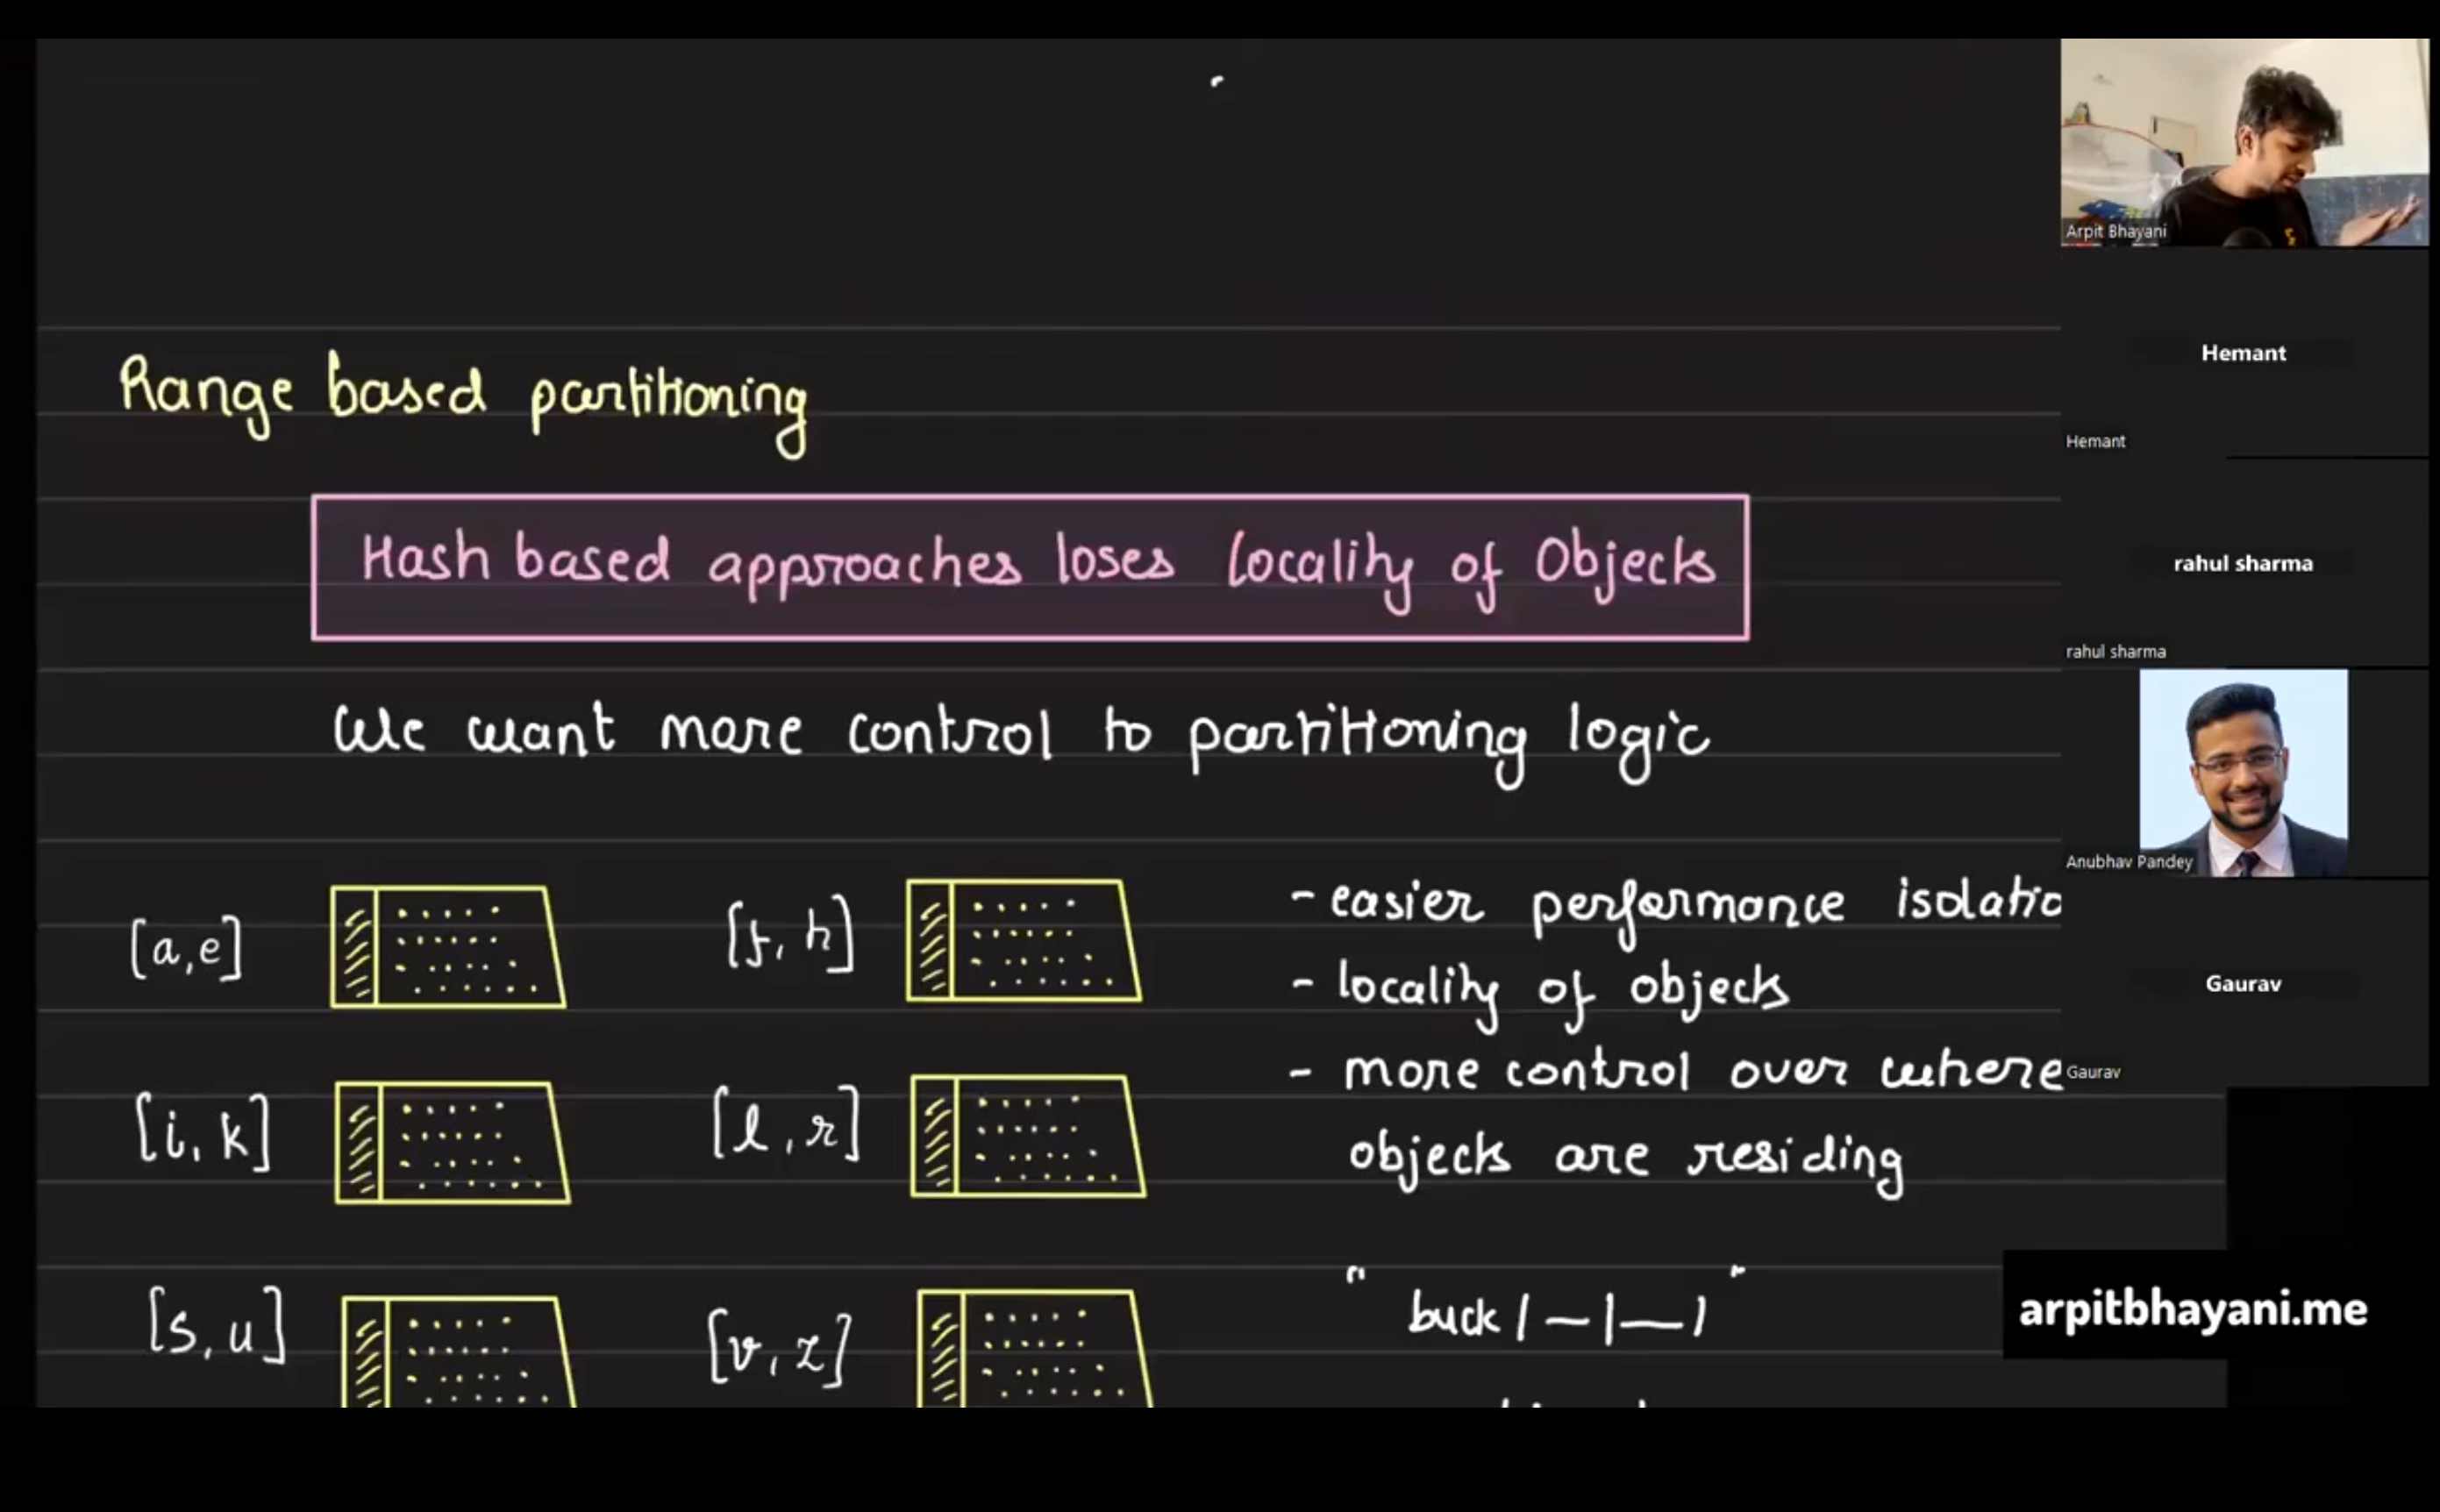 Range based partitioning
Hash based approaches loses locality of Objects
We want more control to partitioning logic
[a,e]
[f, h]
- easier performance isolatio
- locality of objects
[i, k]
[l, r]
- more control over where
objects are residing
[s, u]
[v, z]
" buck / — / — / "
Arpit Bhayani
Hemant
Hemant
rahul sharma
rahul sharma
Anubhav Pandey
Gaurav
Gaurav
arpitbhayani.me